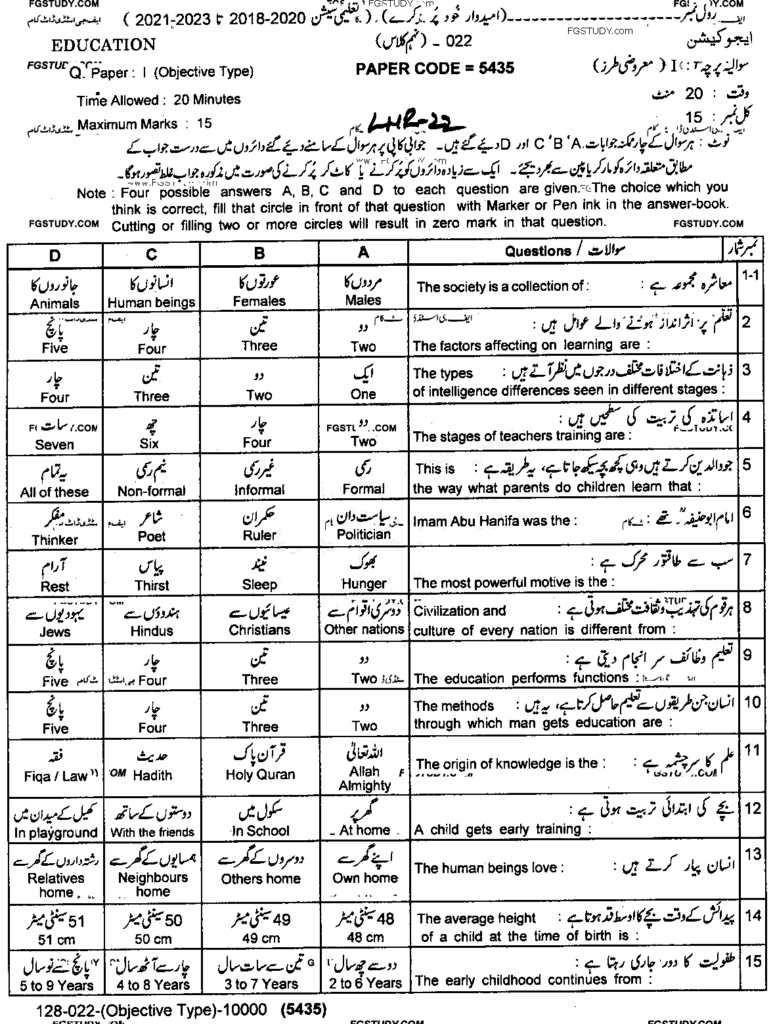 FGSTUDY.COM FGSTUDY.com FGSTUDY.COM
رول نمبر ---------------- (امیدوار خود پُر کرے)۔ ( تعلیمی سیشن 2020-2018 تا 2023-2021 )
ایجوکیشن 022 - (نہم کلاس) EDUCATION
FGSTUDY.com
سوالیہ پرچہ : I ( معروضی طرز) PAPER CODE = 5435 Q. Paper : I (Objective Type)
وقت : 20 منٹ Time Allowed : 20 Minutes
کل نمبر : 15 LHR-22 Maximum Marks : 15
نوٹ : ہر سوال کے چار ممکنہ جوابات A، B، C اور D دیئے گئے ہیں۔ جوابی کاپی پر ہر سوال کے سامنے دیئے گئے دائروں میں سے درست جواب کے
مطابق متعلقہ دائرہ کو مارکر یا پین سے بھر دیجئے۔ ایک سے زیادہ دائروں کو پُر کرنے یا کاٹ کر پُر کرنے کی صورت میں مذکورہ جواب غلط تصور ہوگا۔
www.FGSTUDY.com
Note : Four possible answers A, B, C and D to each question are given. The choice which you
think is correct, fill that circle in front of that question with Marker or Pen ink in the answer-book.
FGSTUDY.COM Cutting or filling two or more circles will result in zero mark in that question. FGSTUDY.COM
D C B A Questions / سوالات نمبر شمار
جانوروں کا انسانوں کا عورتوں کا مردوں کا معاشرہ مجموعہ ہے : 1-1
Animals Human beings Females Males The society is a collection of :
پانچ چار تین دو تعلّم پر اثر انداز ہونے والے عوامل ہیں : 2
Five Four Three Two The factors affecting on learning are :
چار تین دو ایک ذہانت کے اختلافات مختلف درجوں میں نظر آتے ہیں : The types 3
Four Three Two One of intelligence differences seen in different stages :
سات چھ چار دو اساتذہ کی تربیت کی سطحیں ہیں : 4
Seven Six Four Two The stages of teachers training are :
یہ تمام نیم رسمی غیر رسمی رسمی جو والدین کرتے ہیں وہی کچھ بچہ سیکھ جاتا ہے، یہ طریقہ ہے : This is 5
All of these Non-formal Informal Formal the way what parents do children learn that :
مفکر شاعر حکمران سیاست دان امام ابو حنیفہؒ تھے : Imam Abu Hanifa was the : 6
Thinker Poet Ruler Politician
آرام پیاس نیند بھوک سب سے طاقتور محرک ہے : 7
Rest Thirst Sleep Hunger The most powerful motive is the :
یہودیوں سے ہندوؤں سے عیسائیوں سے دوسری اقوام سے ہر قوم کی تہذیب و ثقافت مختلف ہوتی ہے : Civilization and 8
Jews Hindus Christians Other nations culture of every nation is different from :
پانچ چار تین دو تعلیم وظائف سر انجام دیتی ہے : 9
Five Four Three Two The education performs functions :
پانچ چار تین دو انسان جن طریقوں سے تعلیم حاصل کرتا ہے، یہ ہیں : The methods 10
Five Four Three Two through which man gets education are :
فقہ حدیث قرآن پاک اللہ تعالیٰ علم کا سرچشمہ ہے : 11
Fiqa / Law Hadith Holy Quran Allah Almighty The origin of knowledge is the :
کھیل کے میدان میں دوستوں کے ساتھ سکول میں گھر پر بچے کی ابتدائی تربیت ہوتی ہے : 12
In playground With the friends In School At home A child gets early training :
رشتہ داروں کے گھر سے ہمسایوں کے گھر سے دوسروں کے گھر سے اپنے گھر سے انسان پیار کرتے ہیں : 13
Relatives home Neighbours home Others home Own home The human beings love :
51 سینٹی میٹر 50 سینٹی میٹر 49 سینٹی میٹر 48 سینٹی میٹر پیدائش کے وقت بچے کا اوسط قد ہوتا ہے : The average height 14
51 cm 50 cm 49 cm 48 cm of a child at the time of birth is :
پانچ سے نو سال چار سے آٹھ سال تین سے سات سال دو سے چھ سال طفولیت کا دور جاری رہتا ہے : 15
5 to 9 Years 4 to 8 Years 3 to 7 Years 2 to 6 Years The early childhood continues from :
128-022-(Objective Type)-10000 (5435)
FGSTUDY.COM FGSTUDY.COM